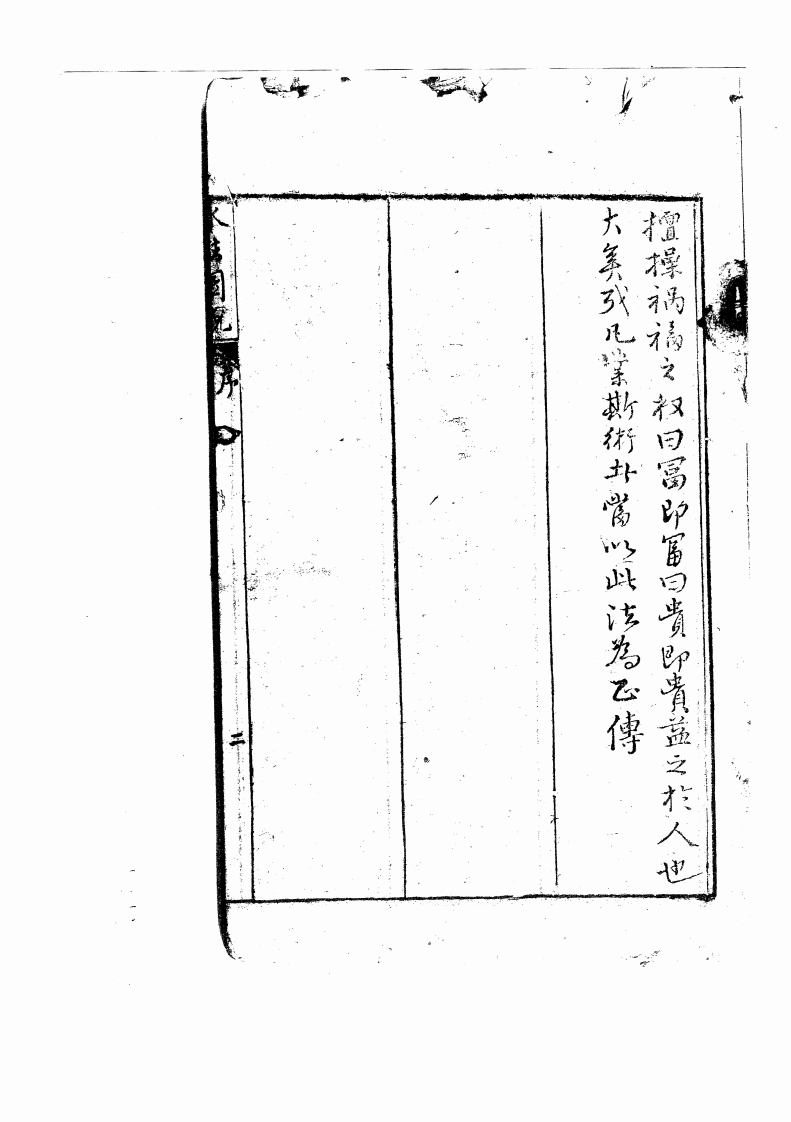 擅操禍福之权曰冨即冨曰貴即貴益之於人也
大矣哉凡業斯術士當以此法為正傳
水法圖説
序
二